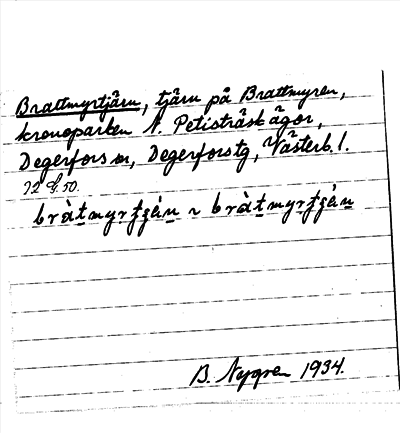 Brattmyrtjärn, tjärn på Brattmyren,
kronoparken N. Petisträskägor,
Degerfors sn, Degerforstg, Västerb. l.
72 G. 50.
bràt̲my̲r̲tjä́n̲ ~ bràt̲my̲r̲tjä̀n̲
B. Nygren 1934.